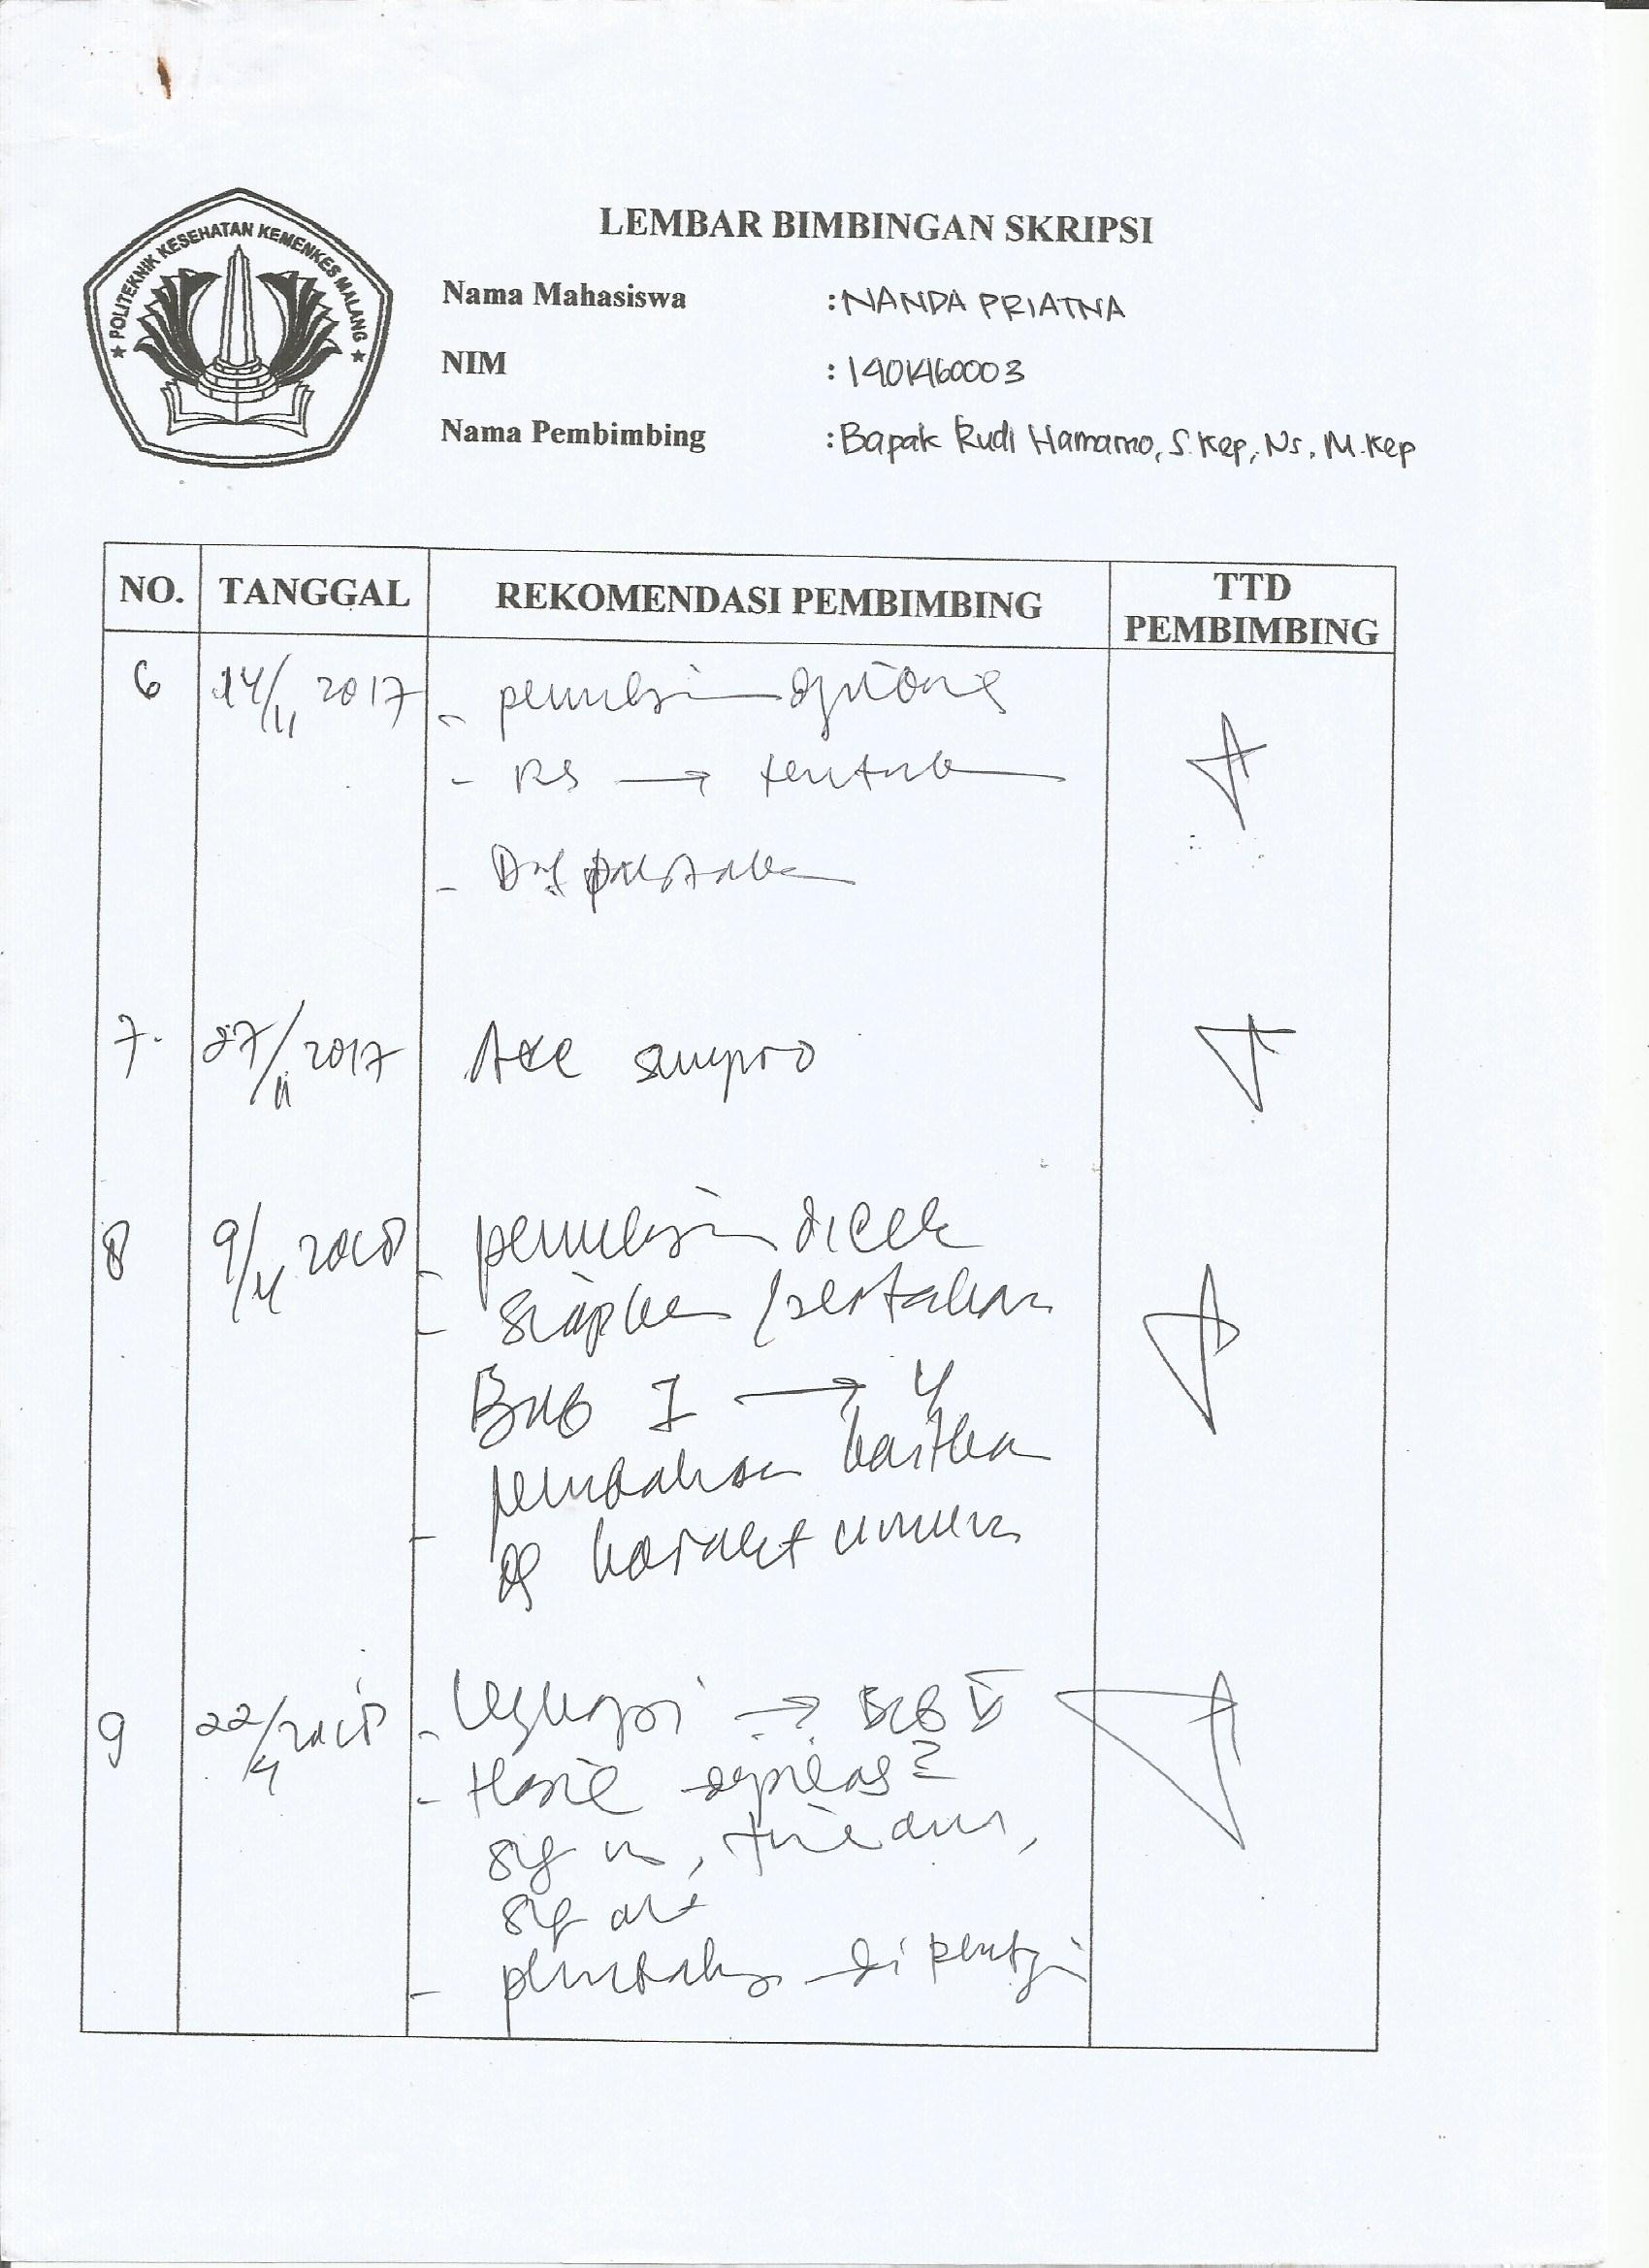 POLITEKNIK KESEHATAN KEMENKES MALANG
LEMBAR BIMBINGAN SKRIPSI
Nama Mahasiswa : NANDA PRIATNA
NIM : 1401460003
Nama Pembimbing : Bapak Rudi Hamarno, S.Kep, Ns, M.Kep
NO. TANGGAL REKOMENDASI PEMBIMBING TTD PEMBIMBING
6 14/11 2017 - penulisan
- RS → tentukan
- Daf pustaka
7. 27/11 2017 Acc sempro
8 9/4 2018 - penulisan dicek
- siapkan /
Bab I → 4
- pembahasan kaitkan
dg karakt umum
9 22/4 2018 - → Bab V
- Hasil
- pembahas di